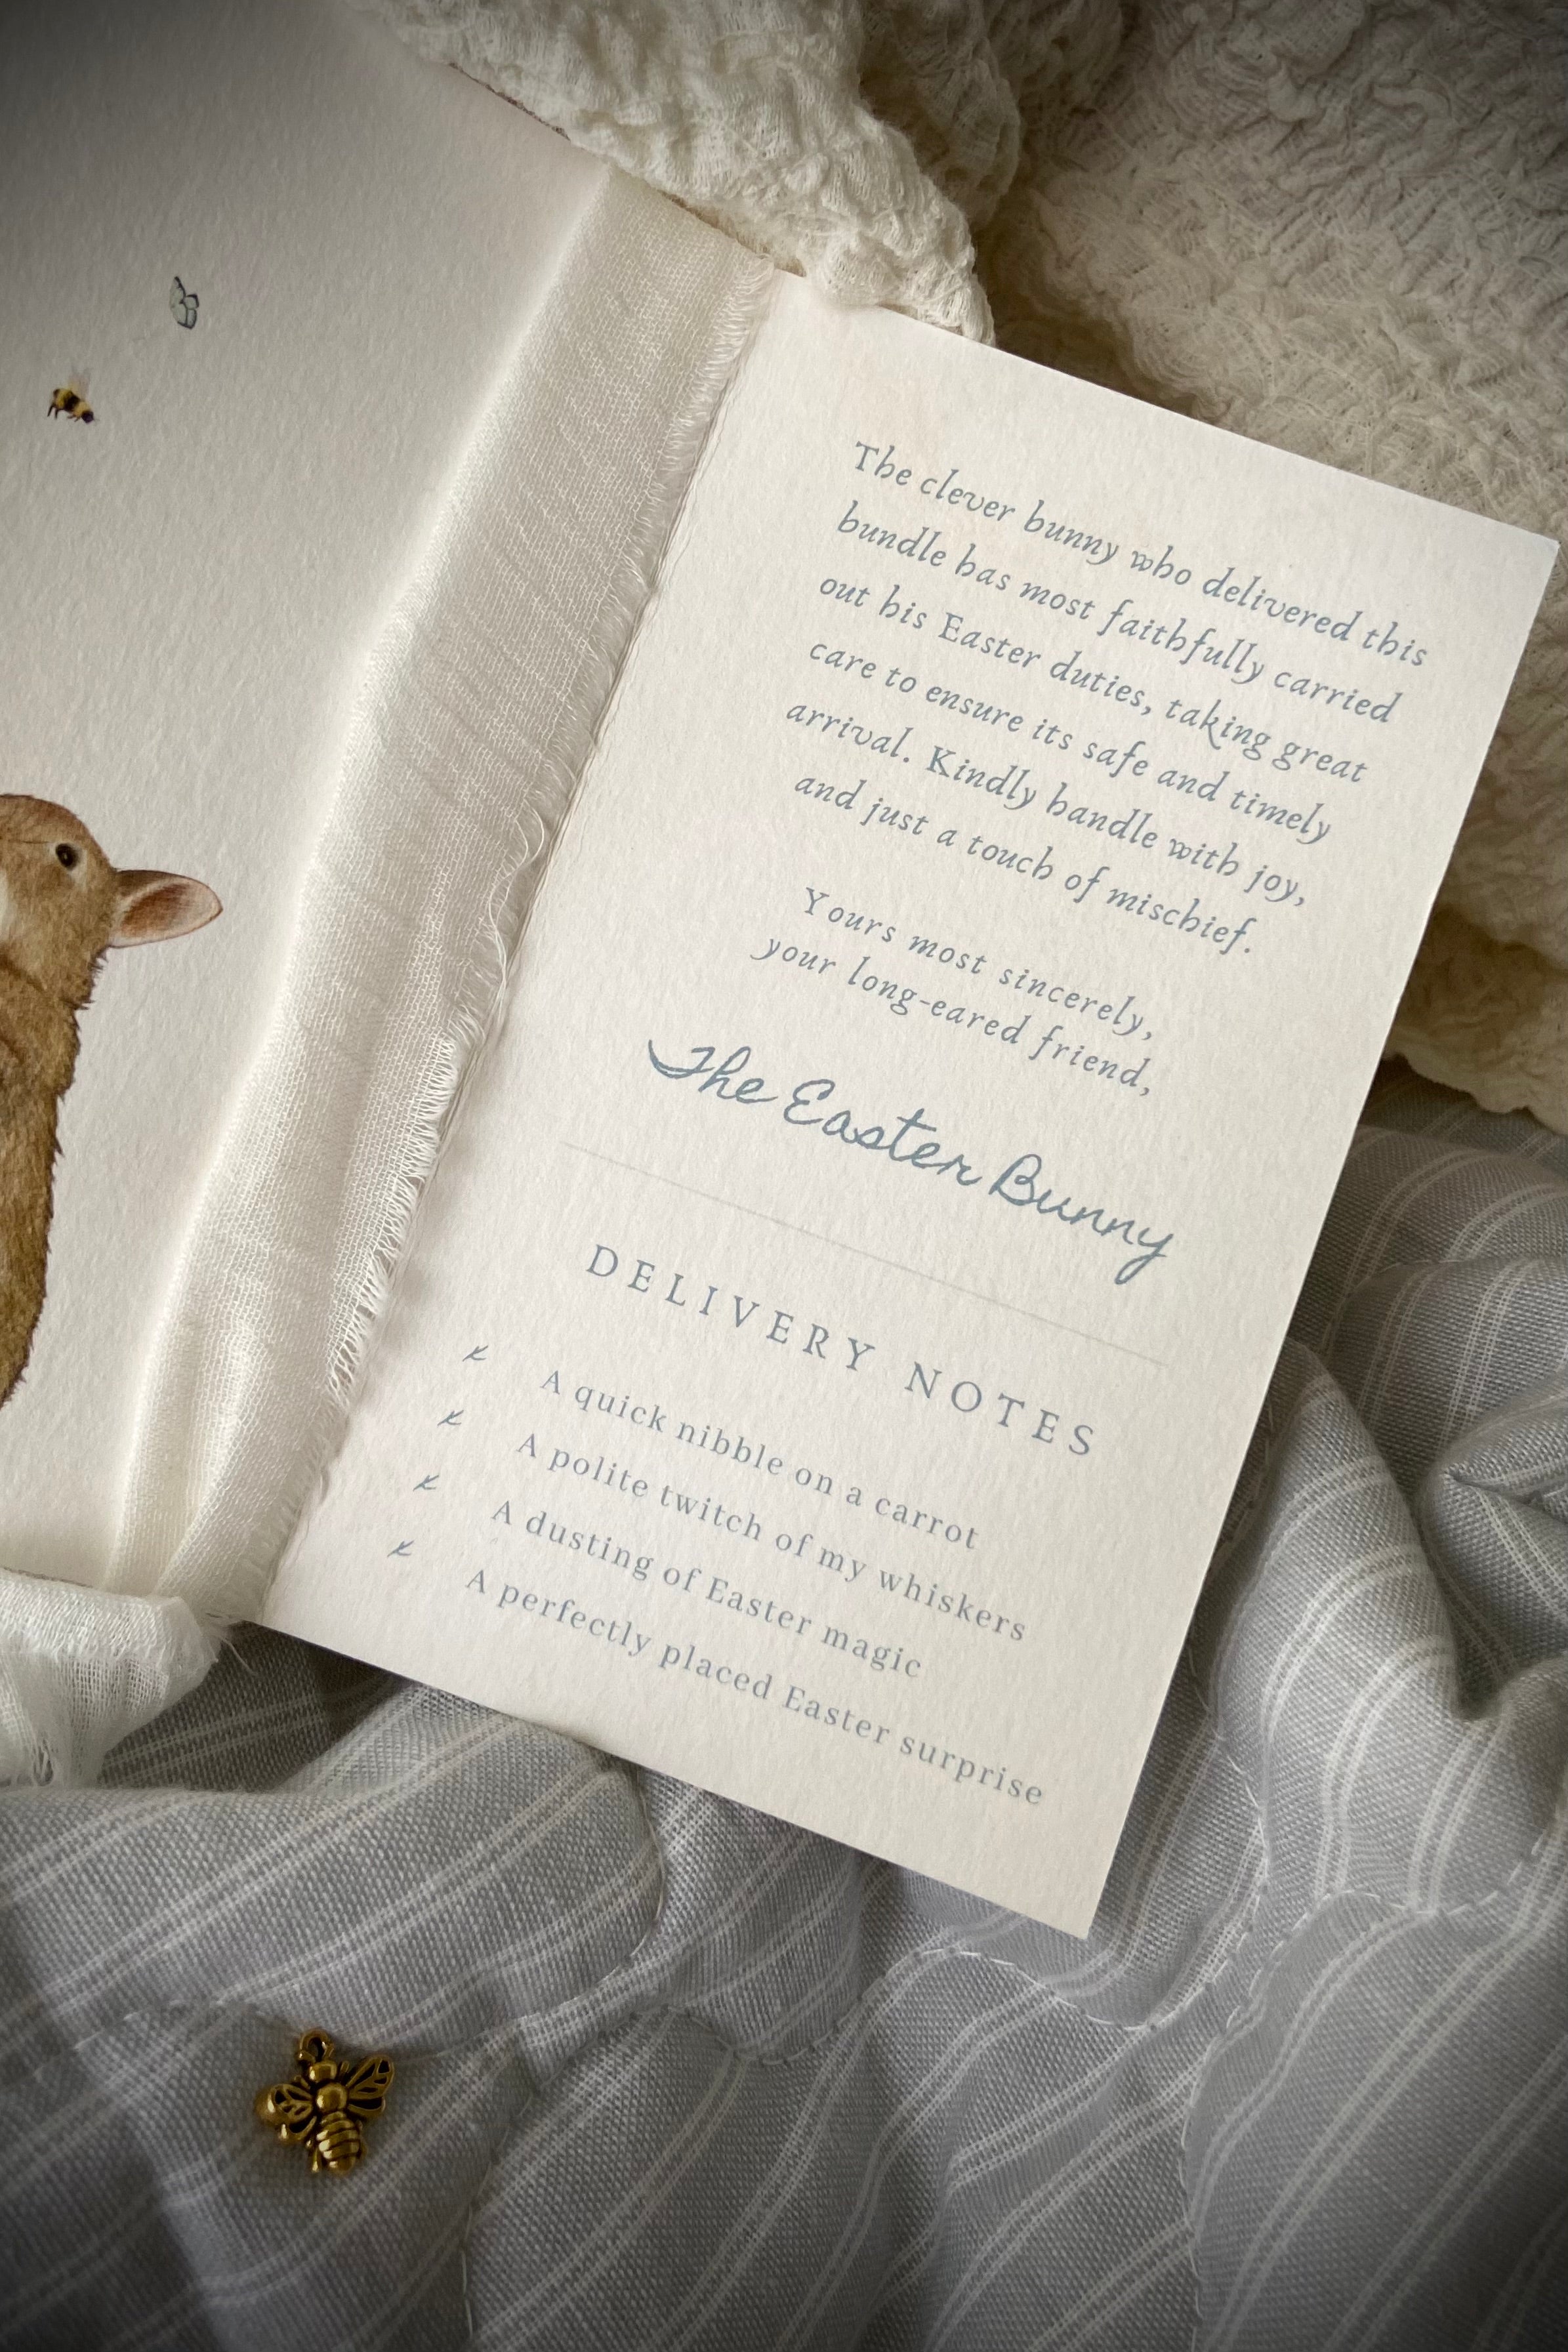 The clever bunny who delivered this
bundle has most faithfully carried
out his Easter duties, taking great
care to ensure its safe and timely
arrival. Kindly handle with joy,
and just a touch of mischief.
Yours most sincerely,
your long-eared friend,
The Easter Bunny
DELIVERY NOTES
A quick nibble on a carrot
A polite twitch of my whiskers
A dusting of Easter magic
A perfectly placed Easter surprise